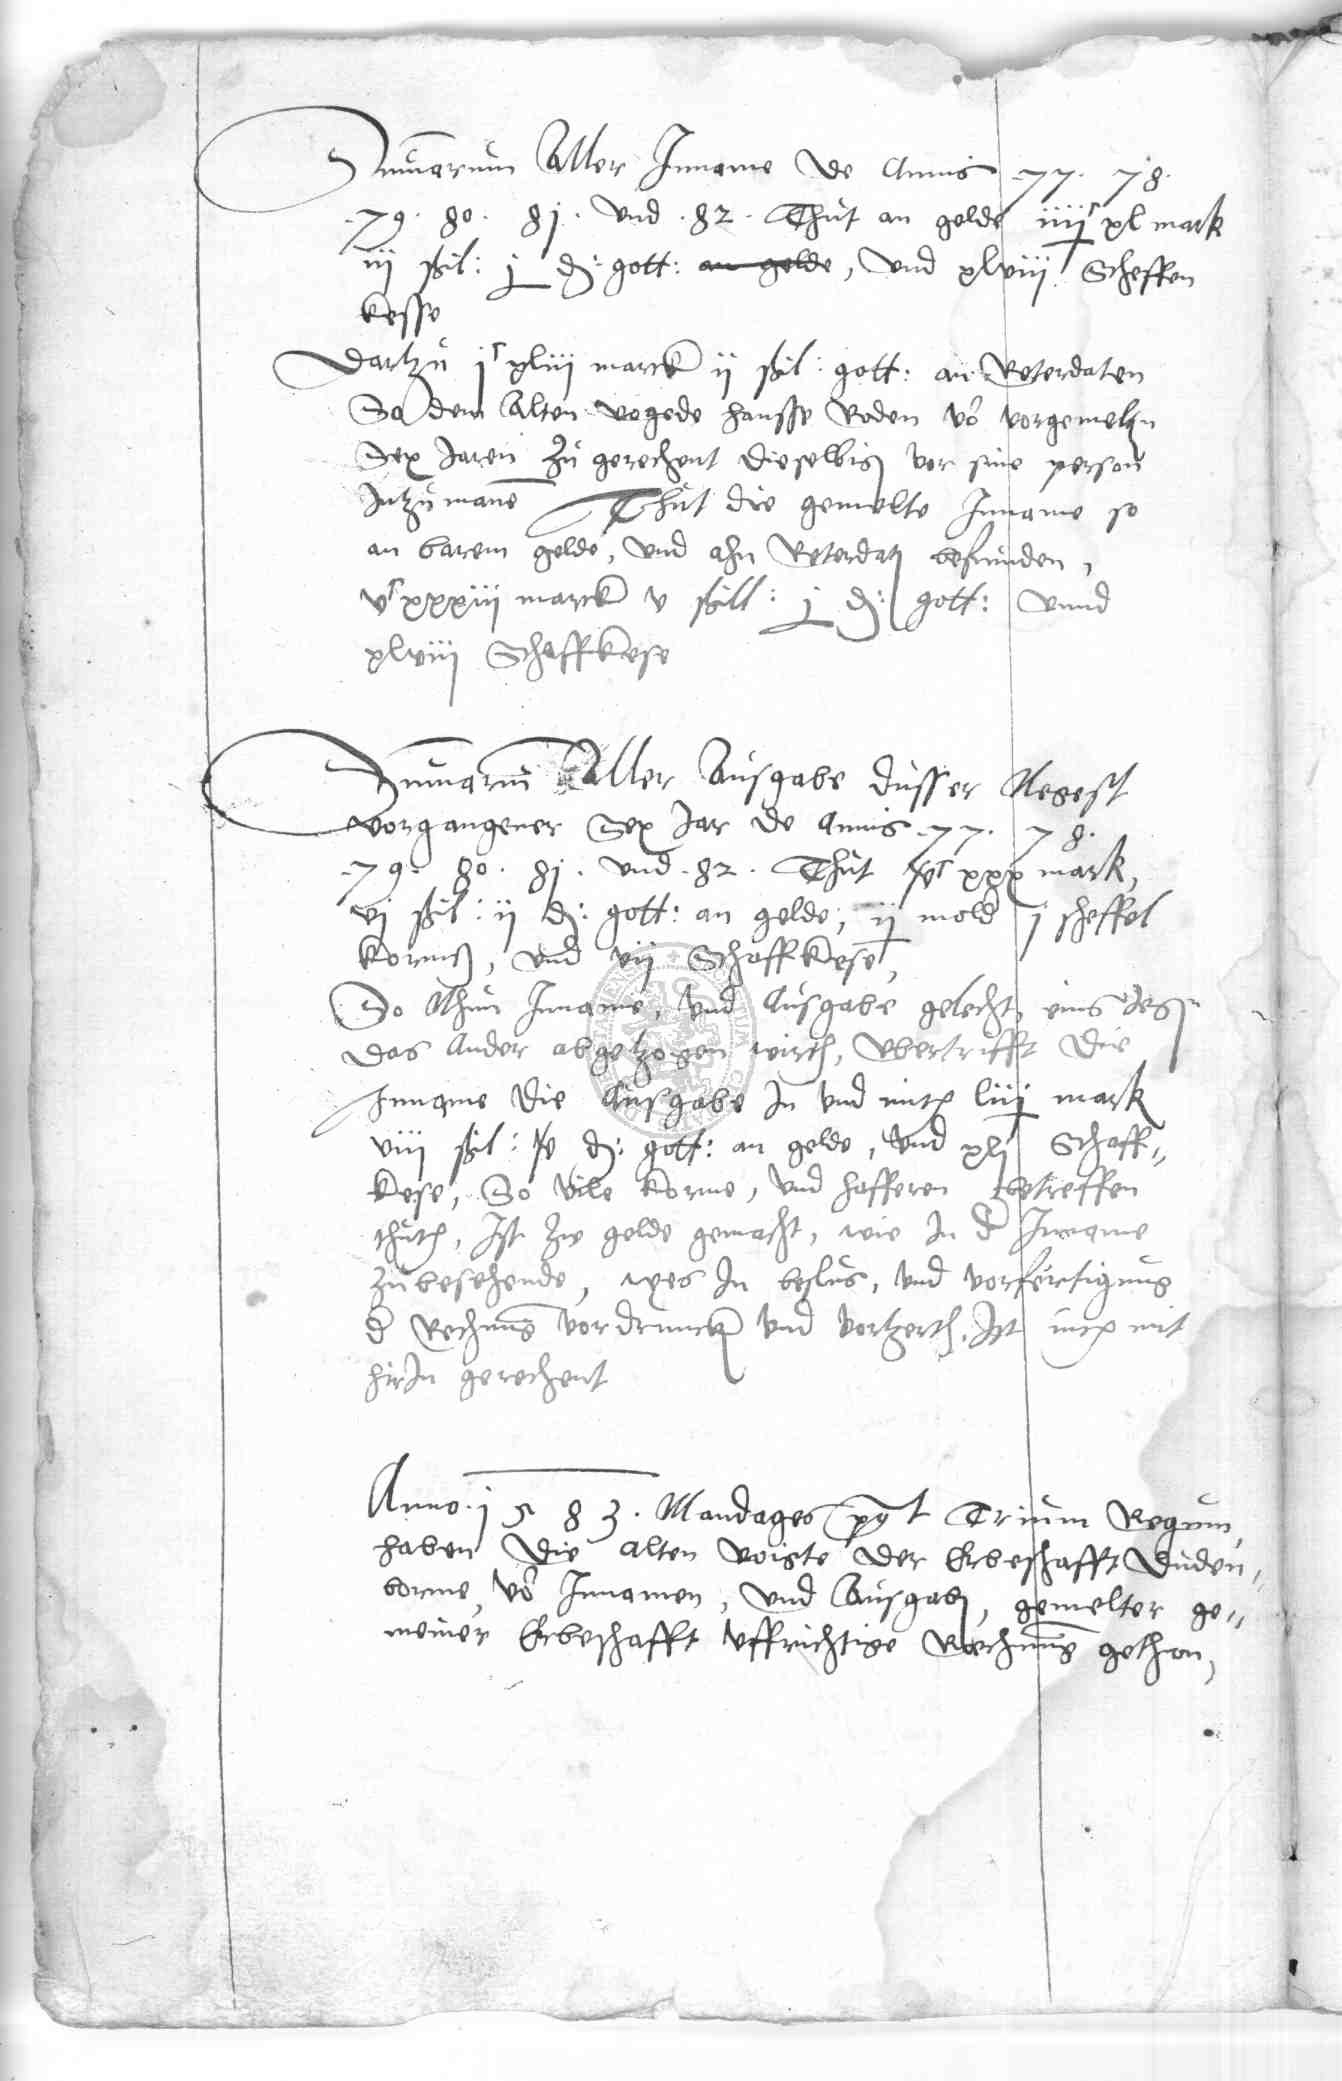 Summarum Aller Inname de Annis .77. 78.
.79. 80. 81. Vnd .82. Thut an gelde iiijᶜ xl mark
iij ßil: j d: gott: an gelde, Vnd xlviij Scheffen
kesse
Dartzu jᶜ xliij marck ij ßil: gott: an Reterdaten
So dem Alten vogede hansse Roden vo vorgemeltn
Sex Jaren Zu gerechent dieselbig vor sine person
Intzumane Thut die gemelte Inname so
an barem gelde, Vnd ahn Reterdatn befunden,
vᶜ xxxiij marck v ßill: j d: gott: Vnnd
xlviij Schaffkese
Summarum Aller Ausgabe dusser Regest
vorgangener Sex Jar de Annis .77. 78.
.79. 80. 81. Vnd .82. Thut vᶜ xxx mark,
vj ßil: ij d: gott: an gelde, ij mold j scheffel
korns, Vnd vij Schaffkese,
So Nhun Inname, Vnd Ausgabe gelecht, eins des
das Ander abgetzogen wirth, Vbertrifft die
Inname die Ausgabe In Vnd mit liij mark
viij ßil: d: gott: an gelde, Vnd xlj Schaff-
kese, So vile korne, Vnd hafferen betreffen
thuth, Ist Zw gelde gemacht, wie In der Inname
Zubesehende, wes In besluß, Vnd vorfertigung
der Rechnung vordrunck Vnd vortzerth, Ist mit
hirIn gerechent
Anno .1583. Mandages post Trium Regum,
haben die alten voigte der Erbeschafft Duden-
borne, vo Innamen, Vnd Ausgabn, gemelter ge-
meiner Erbeschafft Vffrichtige Rechnung gethon,